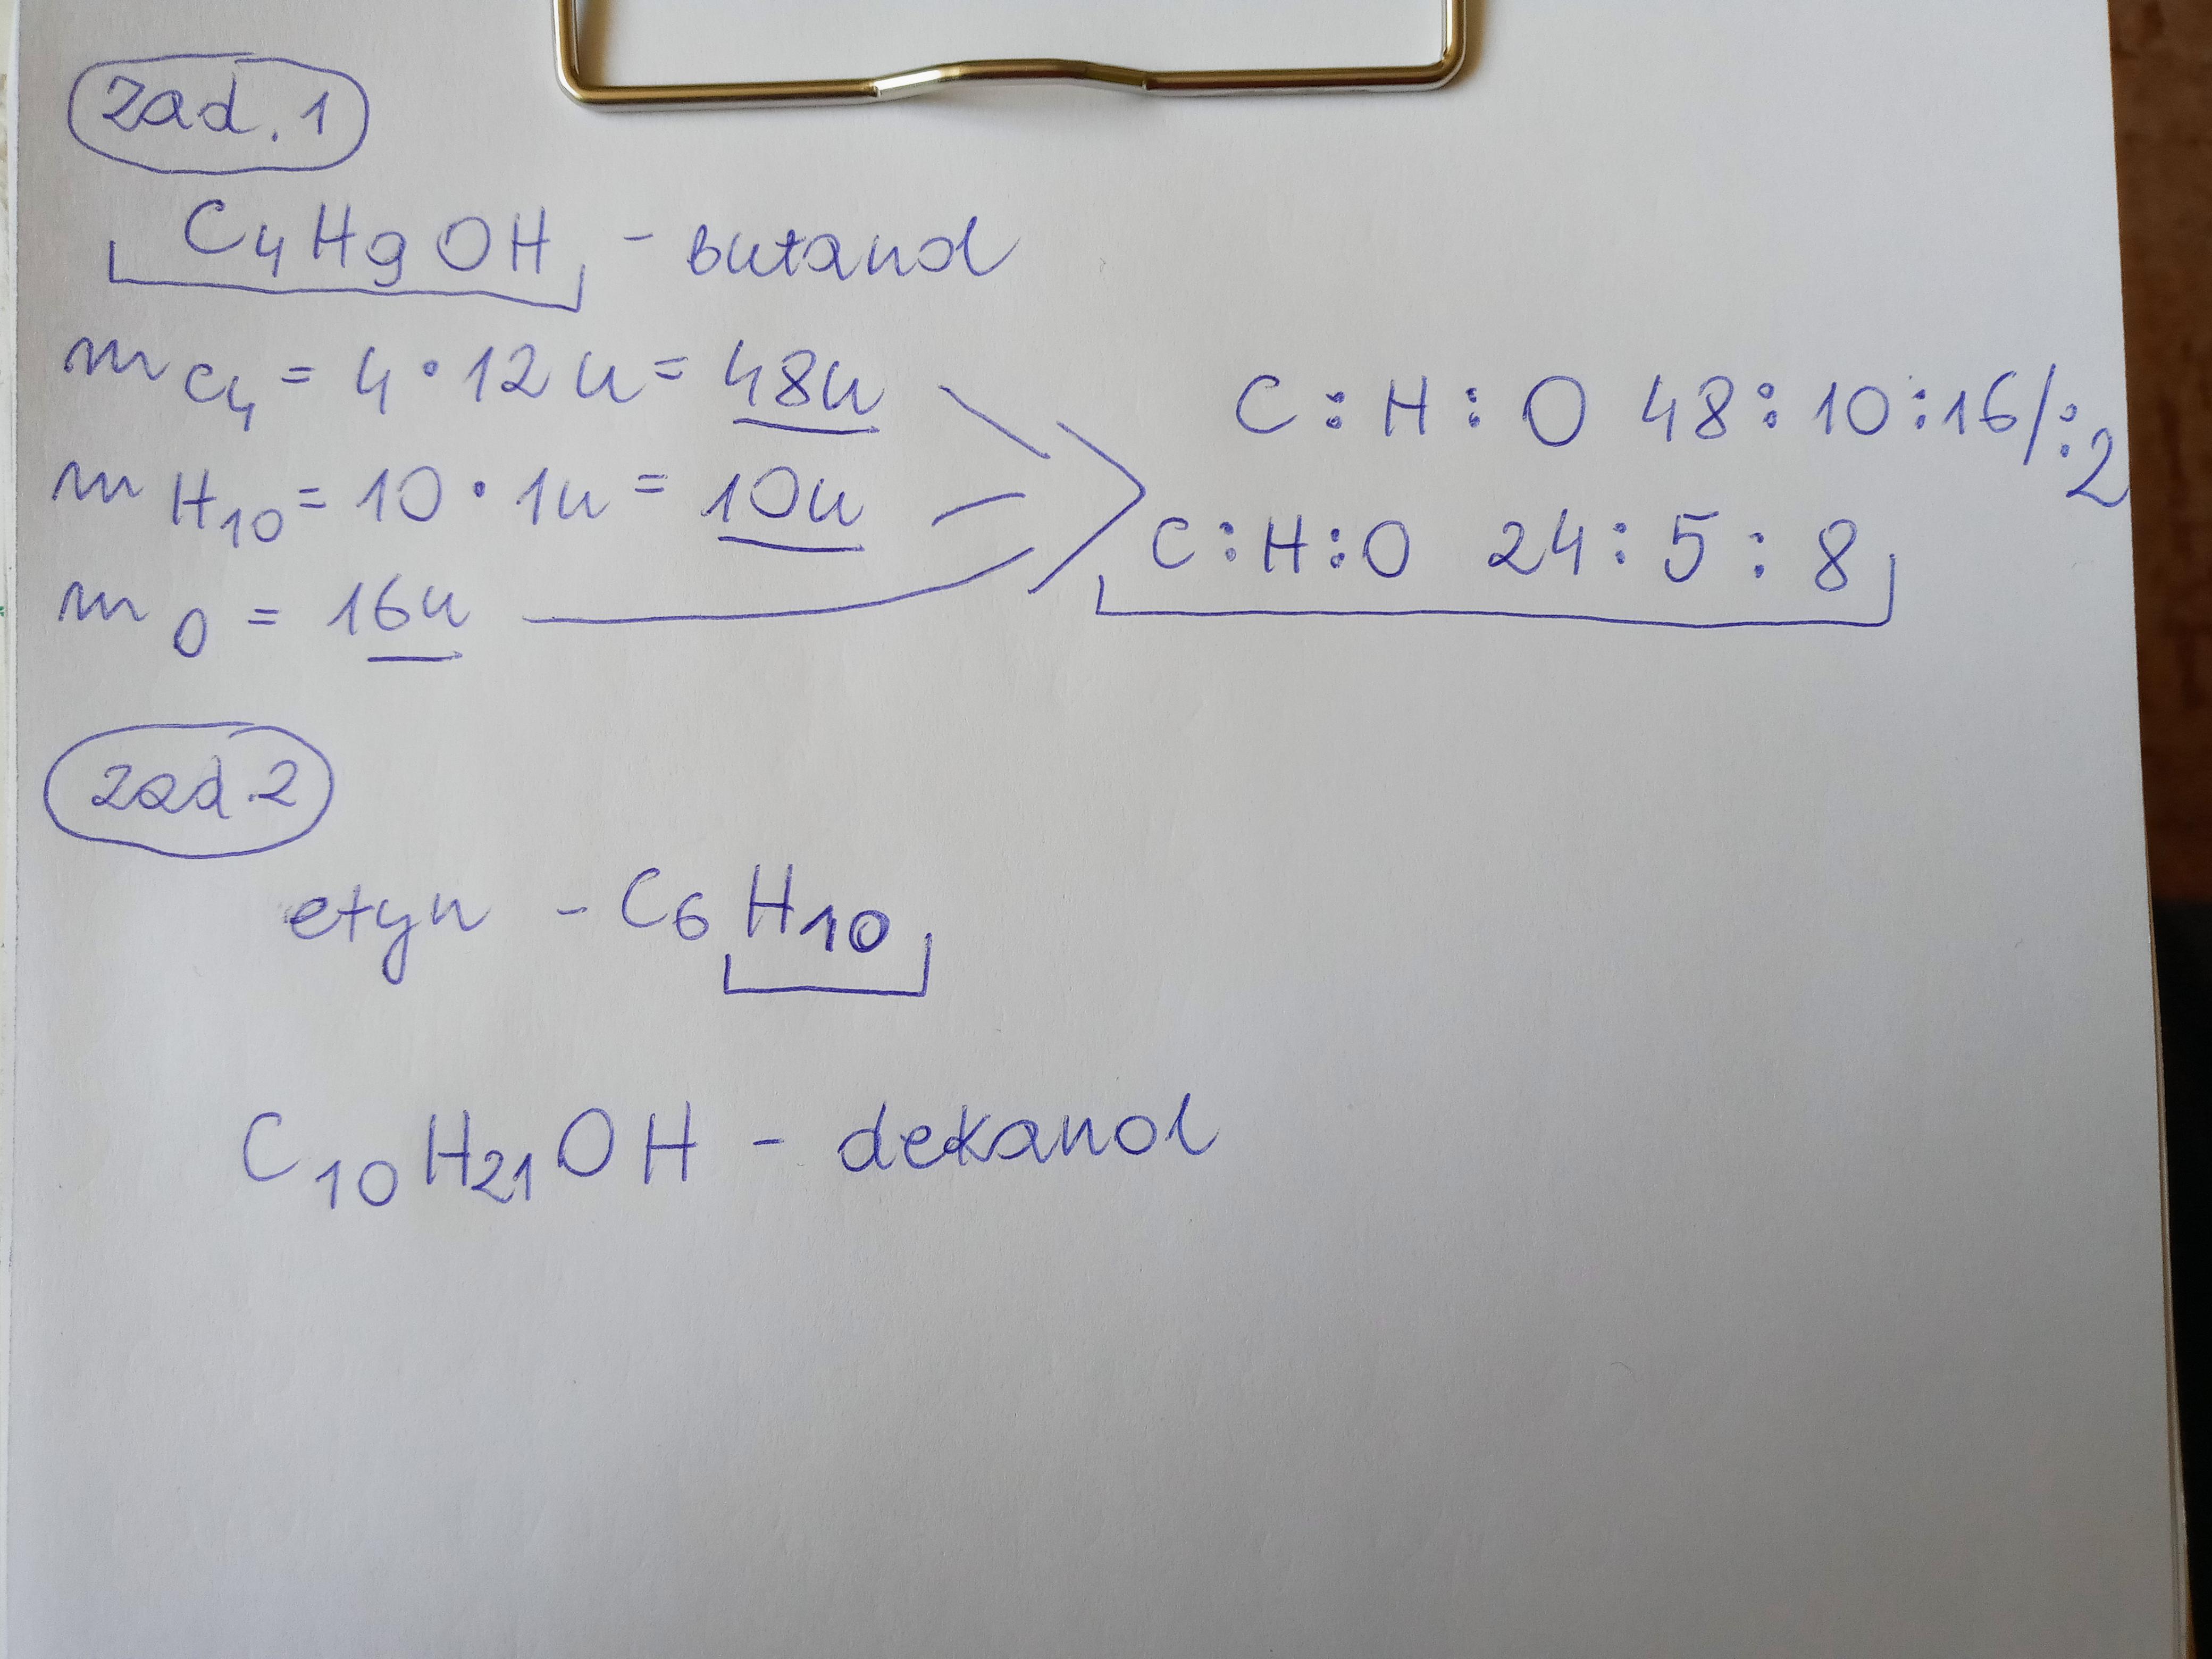 zad. 1
C₄H₉OH - butanol
m C₄ = 4 · 12u = 48u
m H₁₀ = 10 · 1u = 10u
m O = 16u
C : H : O 48 : 10 : 16 /: 2
C : H : O 24 : 5 : 8
zad. 2
etyn - C₆H₁₀
C₁₀H₂₁OH - dekanol